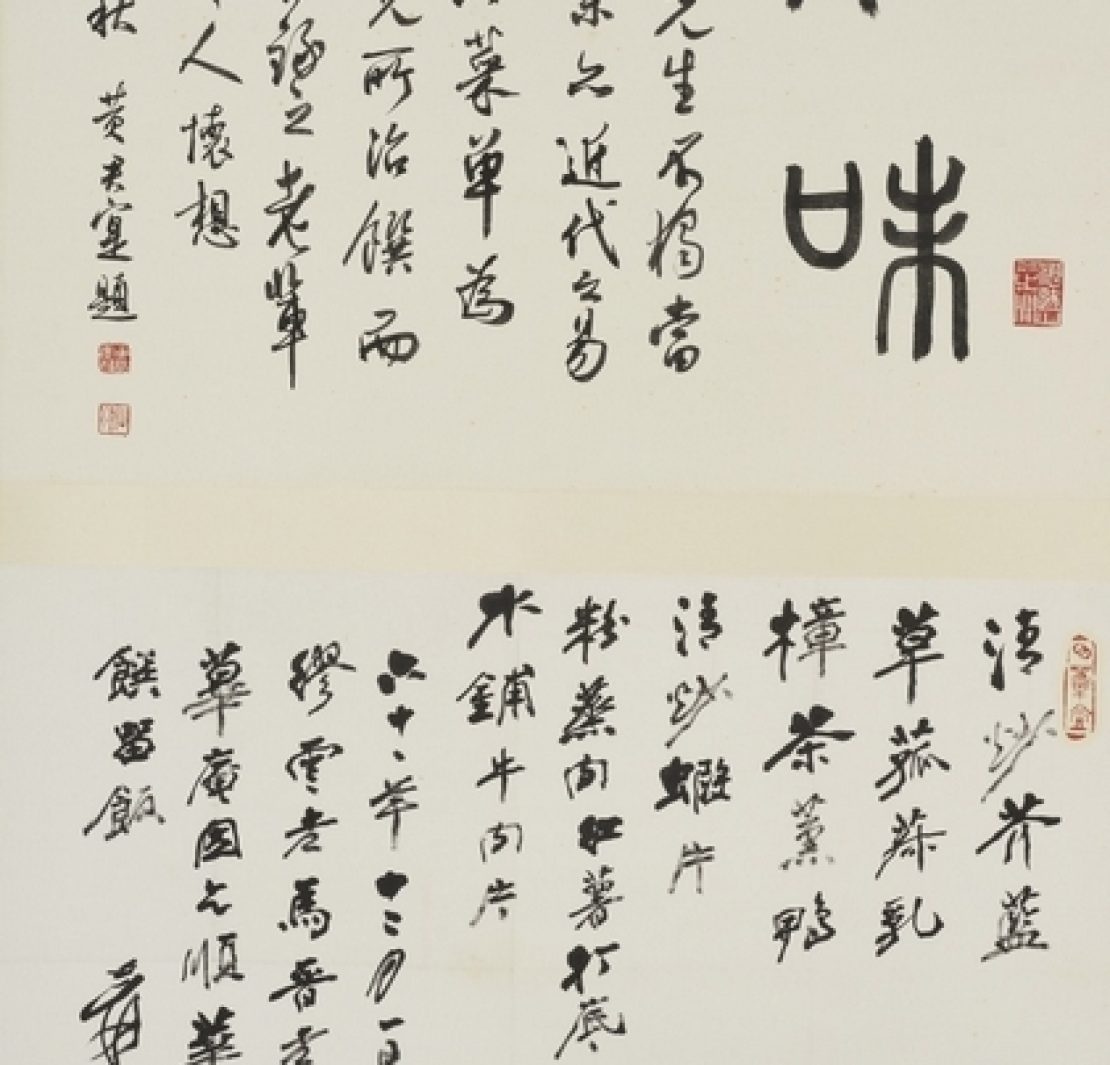 味
先生不獨當
亦近代之易
菜單為
所治饌而
錄之老輩
人懷想
秋 黃君寔題
清炒芥藍
草菰蒸乳
樟茶薰鴨
清炒蝦片
粉蒸肉紅薯打底
水鋪牛肉片
六十二年十二月一日
繆雲老馬晉老
華庵國之順華
饌留飯
爰